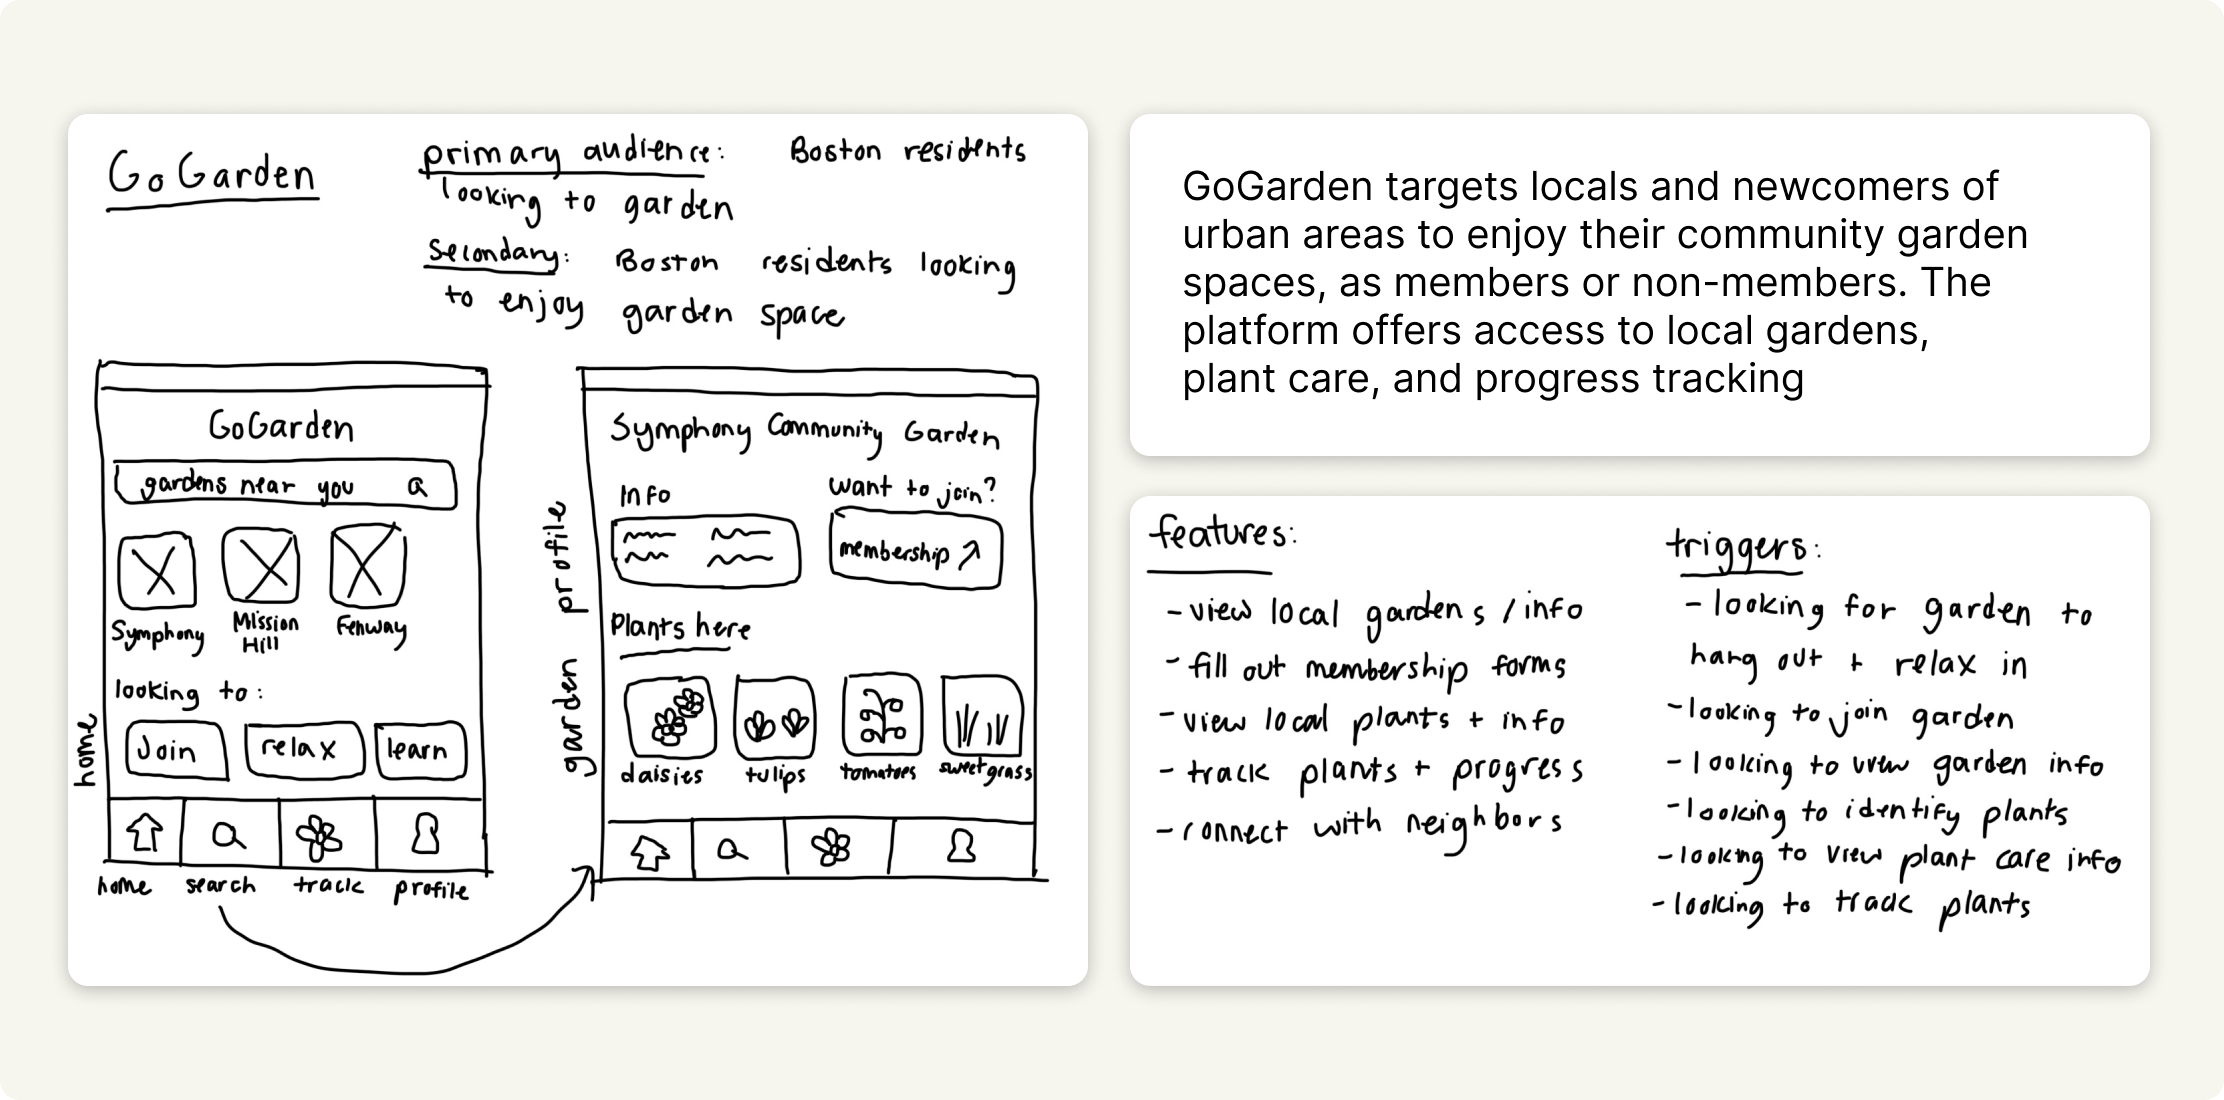 GoGarden
primary audience: Boston residents
looking to garden
secondary: Boston residents looking
to enjoy garden space
GoGarden
gardens near you
Symphony
Mission
Hill
Fenway
looking to:
Join relax learn
home
home search track profile
garden profile
Symphony Community Garden
Info
want to join?
membership ↗
Plants here
daisies tulips tomatoes sweetgrass
GoGarden targets locals and newcomers of
urban areas to enjoy their community garden
spaces, as members or non-members. The
platform offers access to local gardens,
plant care, and progress tracking
features:
- view local gardens / info
- fill out membership forms
- view local plants + info
- track plants + progress
- connect with neighbors
triggers:
- looking for garden to
hang out + relax in
- looking to join garden
- looking to view garden info
- looking to identify plants
- looking to view plant care info
- looking to track plants